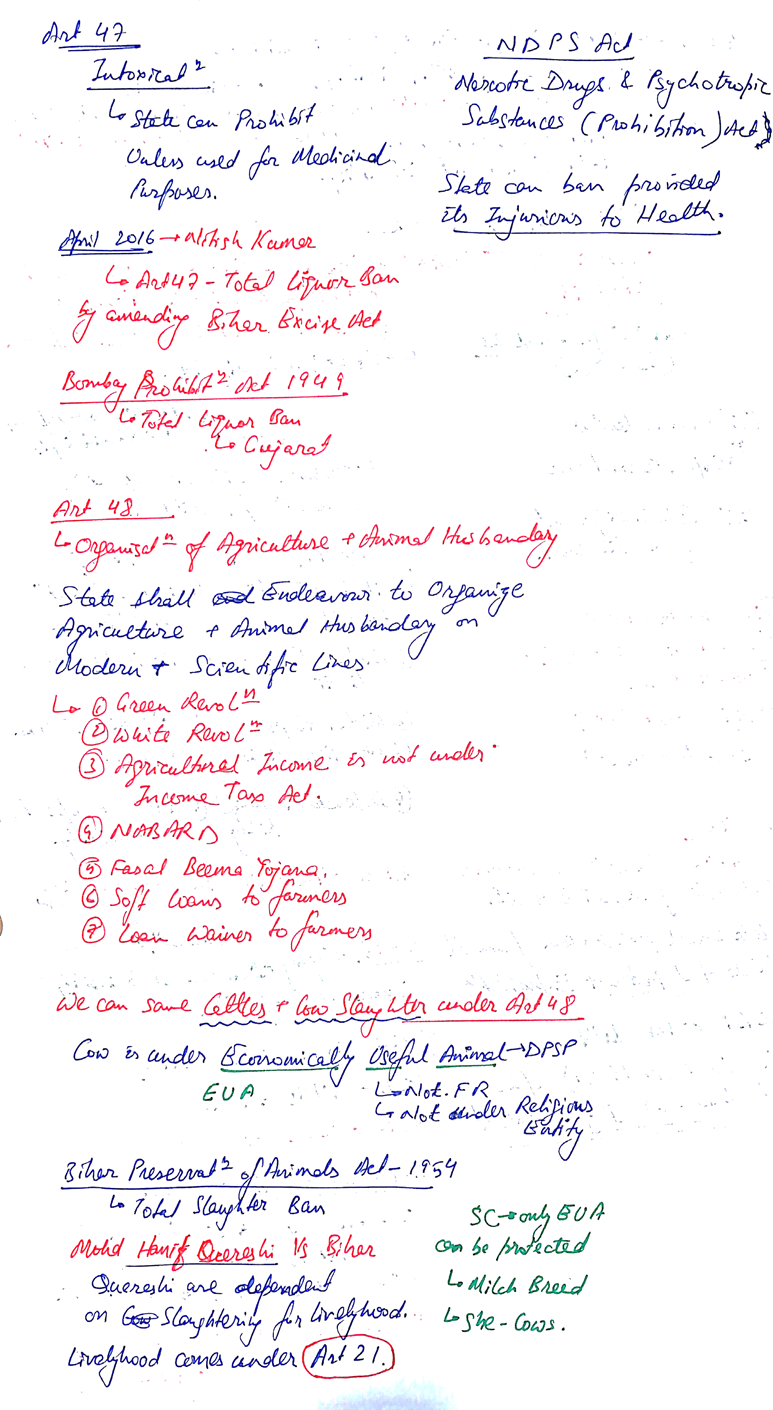 Art 47
Intoxicatⁿ
↳ State can Prohibit
Unless used for Medicinal
Purposes.
NDPS Act
Narcotic Drugs & Psychotropic
Substances (Prohibition) Act
State can ban provided
its Injurious to Health.
April 2016 → Nitish Kumar
↳ Art 47 - Total Liquor Ban
by amending Bihar Excise Act
Bombay Prohibitⁿ Act 1949
↳ Total Liquor Ban
↳ Gujarat
Art 48
↳ Organisatⁿ of Agriculture + Animal Husbandary
State shall Endeavour to Organize
Agriculture + Animal Husbandary on
Modern + Scientific Lines.
↳ ① Green Revolⁿ
② White Revolⁿ
③ Agricultural Income is not under
Income Tax Act.
④ NABARD
⑤ Fasal Beema Yojana.
⑥ Soft Loans to farmers
⑦ Loan Waiver to farmers
We can save Cattles + Cow Slaughter under Art 48
Cow is under Economically Useful Animal → DPSP
EUA
↳ Not FR
↳ Not Under Religious
Entity
Bihar Preservatⁿ of Animals Act - 1954
↳ Total Slaughter Ban
Mohd Hanif Quereshi Vs Bihar
Quereshi are dependent
on Slaughtering for livelyhood.
Livelyhood comes under Art 21.
SC → only EUA
can be protected
↳ Milch Breed
↳ She-Cows.